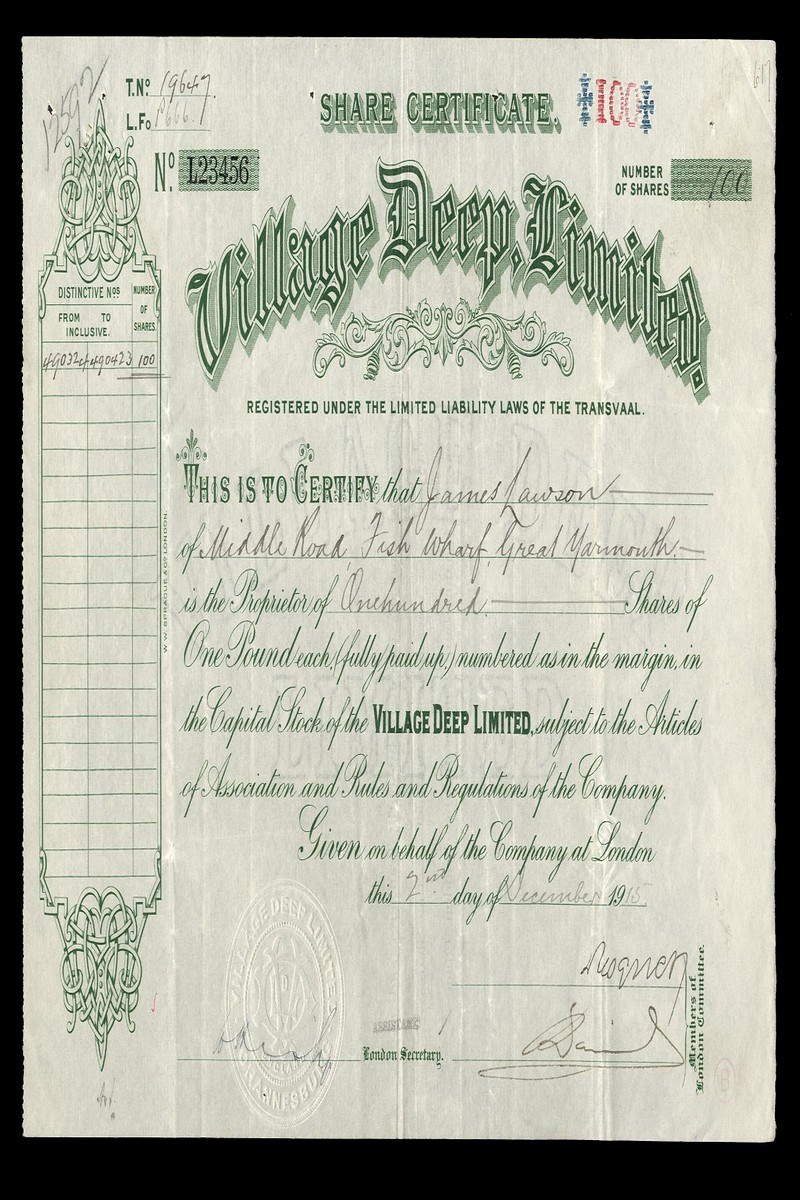 12592
T.Nº 19647.
L.Fo
SHARE CERTIFICATE.
100
617
Nº L23456
NUMBER OF SHARES 100
Village Deep, Limited.
DISTINCTIVE Nos
NUMBER OF SHARES.
FROM TO
INCLUSIVE.
490324 490423 100
REGISTERED UNDER THE LIMITED LIABILITY LAWS OF THE TRANSVAAL.
THIS IS TO CERTIFY that James Lawson
of Middle Road, Fish Wharf, Great Yarmouth.
is the Proprietor of Onehundred. Shares of
One Pound each, (fully paid up,) numbered as in the margin, in
the Capital Stock of the VILLAGE DEEP LIMITED, subject to the Articles
of Association and Rules and Regulations of the Company.
Given on behalf of the Company at London
this 2nd day of December 1915.
W. W. SPRAGUE & Co LONDON.
VILLAGE DEEP LIMITED
JOHANNESBURG
ASSISTANT
London Secretary.
Members of
London Committee.
B